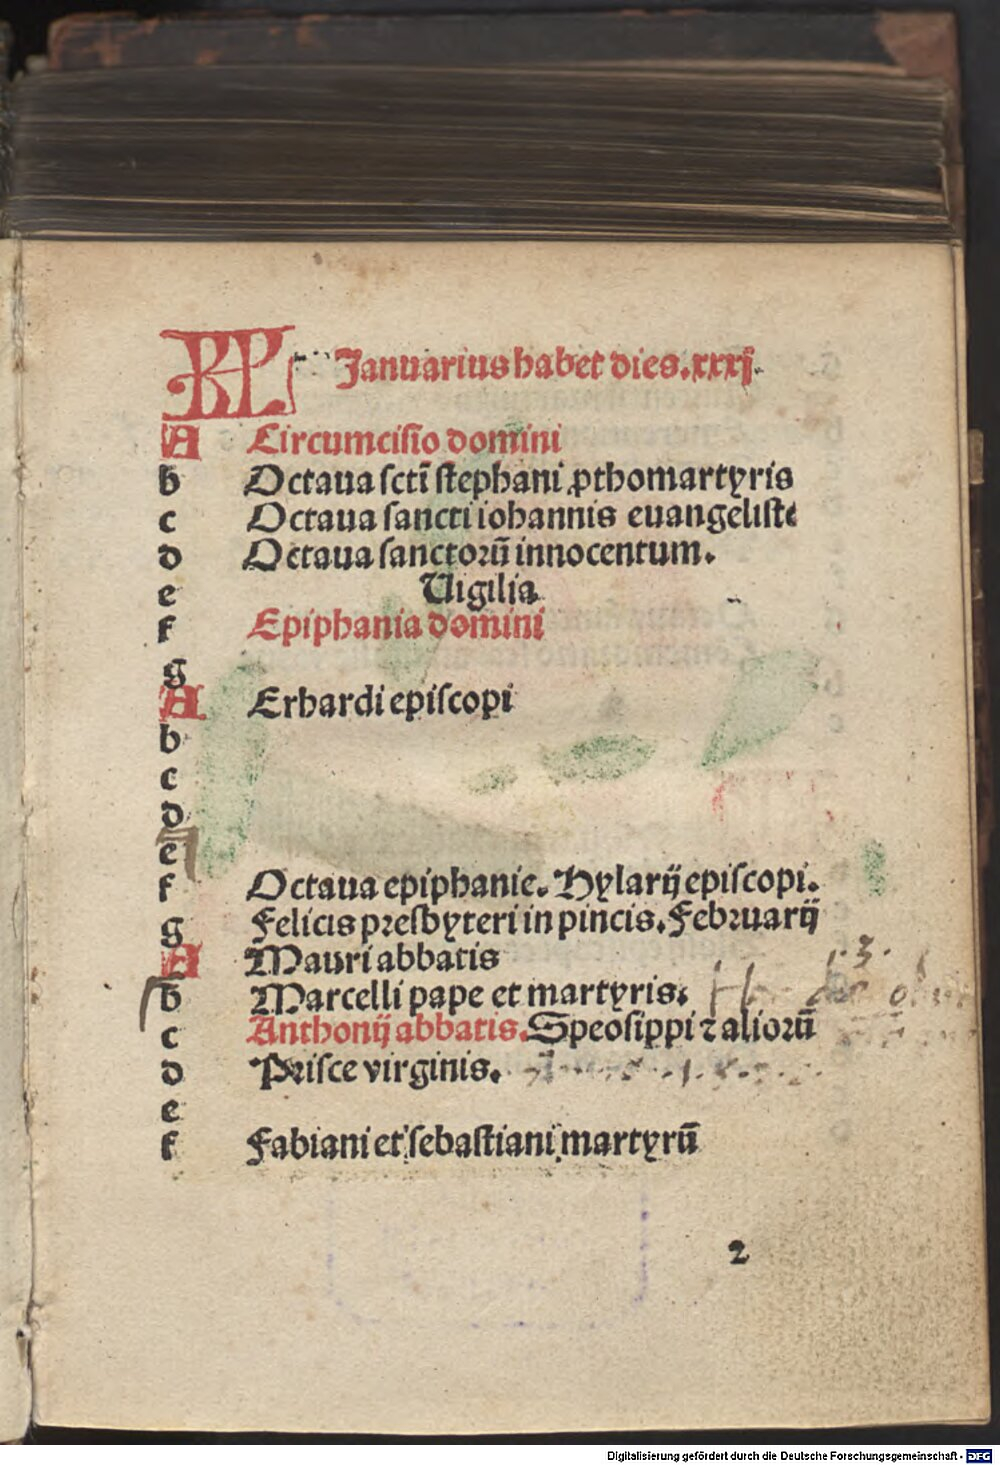 KL Januarius habet dies.xxxj.
A Circumcisio domini
b Octaua sctī stephani ꝓthomartyris
c Octaua sancti iohannis euangeliste
d Octaua sanctorū innocentum.
e Uigilia
f Epiphania domini
g
A Erhardi episcopi
b
c
d
e
f Octaua epiphanie. Hylarij episcopi.
g Felicis presbyteri in pincis. Februarij
A Mauri abbatis
b Marcelli pape et martyris.
c Anthonij abbatis. Speosippi ⁊ aliorū
d Prisce virginis.
e
f Fabiani et sebastiani martyrū
2
Digitalisierung gefördert durch die Deutsche Forschungsgemeinschaft - DFG